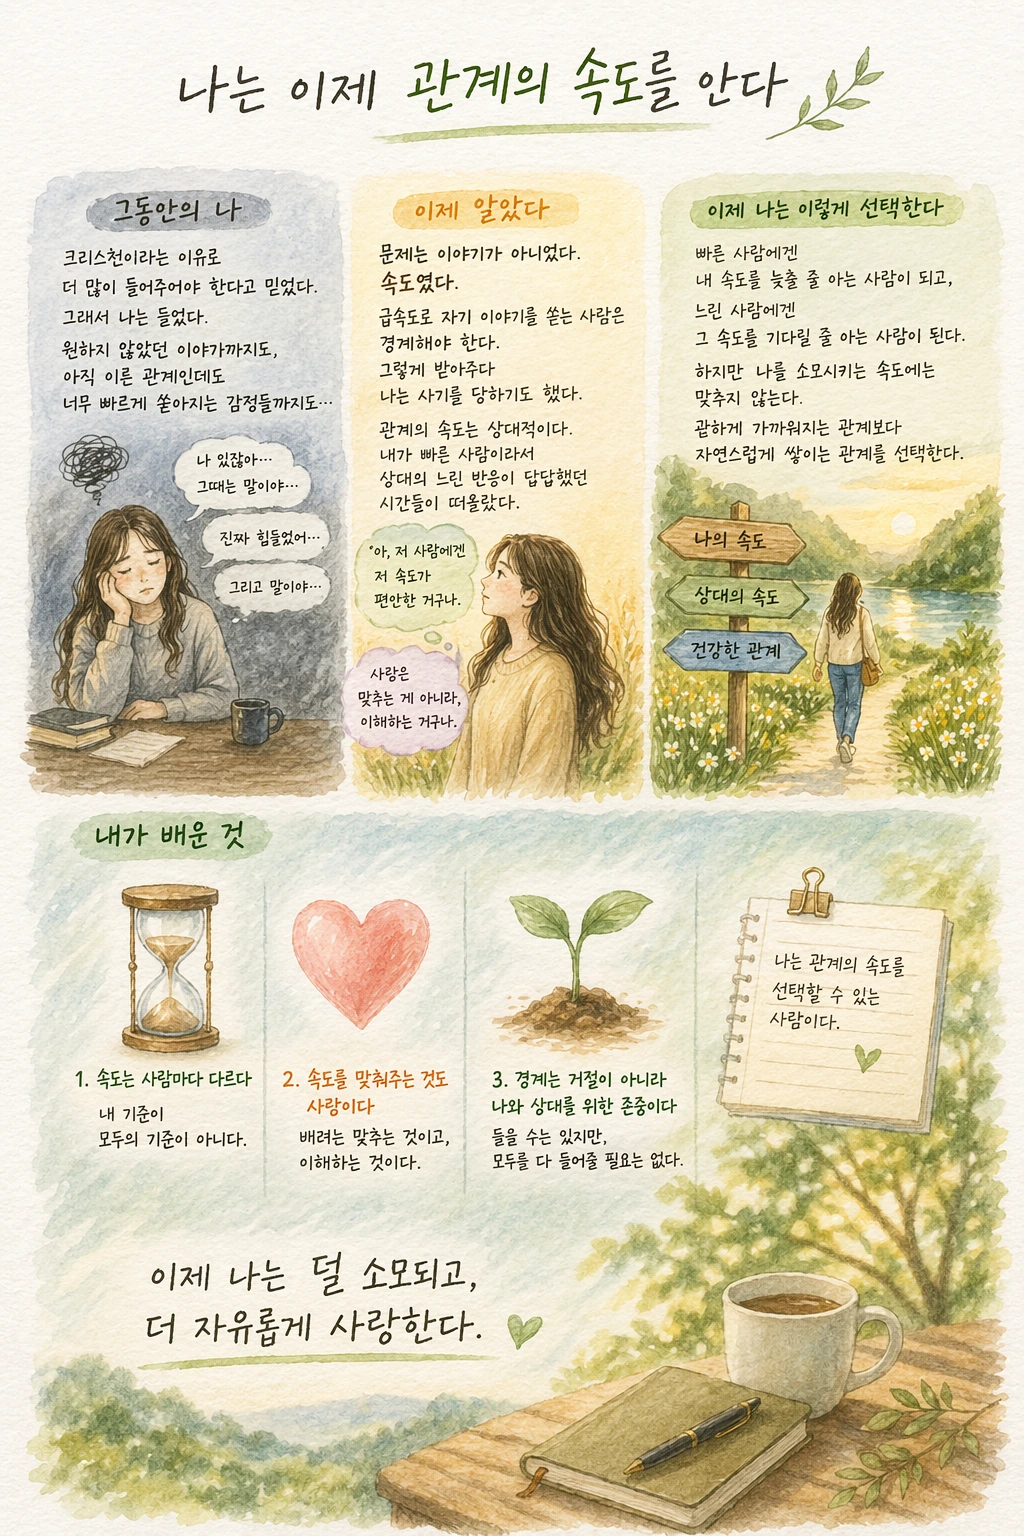 나는 이제 관계의 속도를 안다
그동안의 나
크리스천이라는 이유로
더 많이 들어주어야 한다고 믿었다.
그래서 나는 들었다.
원하지 않았던 이야가까지도,
아직 이른 관계인데도
너무 빠르게 쏟아지는 감정들까지도…
나 있잖아…
그때는 말이야…
진짜 힘들었어…
그리고 말이야…
이제 알았다
문제는 이야기가 아니었다.
속도였다.
급속도로 자기 이야기를 쏟는 사람은
경계해야 한다.
그렇게 받아주다
나는 사기를 당하기도 했다.
관계의 속도는 상대적이다.
내가 빠른 사람이라서
상대의 느린 반응이 답답했던
시간들이 떠올랐다.
"아, 저 사람에겐
저 속도가
편안한 거구나.
사랑은
맞추는 게 아니라,
이해하는 거구나.
이제 나는 이렇게 선택한다
빠른 사람에겐
내 속도를 늦출 줄 아는 사람이 되고,
느린 사람에겐
그 속도를 기다릴 줄 아는 사람이 된다.
하지만 나를 소모시키는 속도에는
맞추지 않는다.
급하게 가까워지는 관계보다
자연스럽게 쌓이는 관계를 선택한다.
나의 속도
상대의 속도
건강한 관계
내가 배운 것
1. 속도는 사람마다 다르다
내 기준이
모두의 기준이 아니다.
2. 속도를 맞춰주는 것도
사랑이다
배려는 맞추는 것이고,
이해하는 것이다.
3. 경계는 거절이 아니라
나와 상대를 위한 존중이다
들을 수는 있지만,
모두를 다 들어줄 필요는 없다.
나는 관계의 속도를
선택할 수 있는
사람이다.
이제 나는 덜 소모되고,
더 자유롭게 사랑한다.